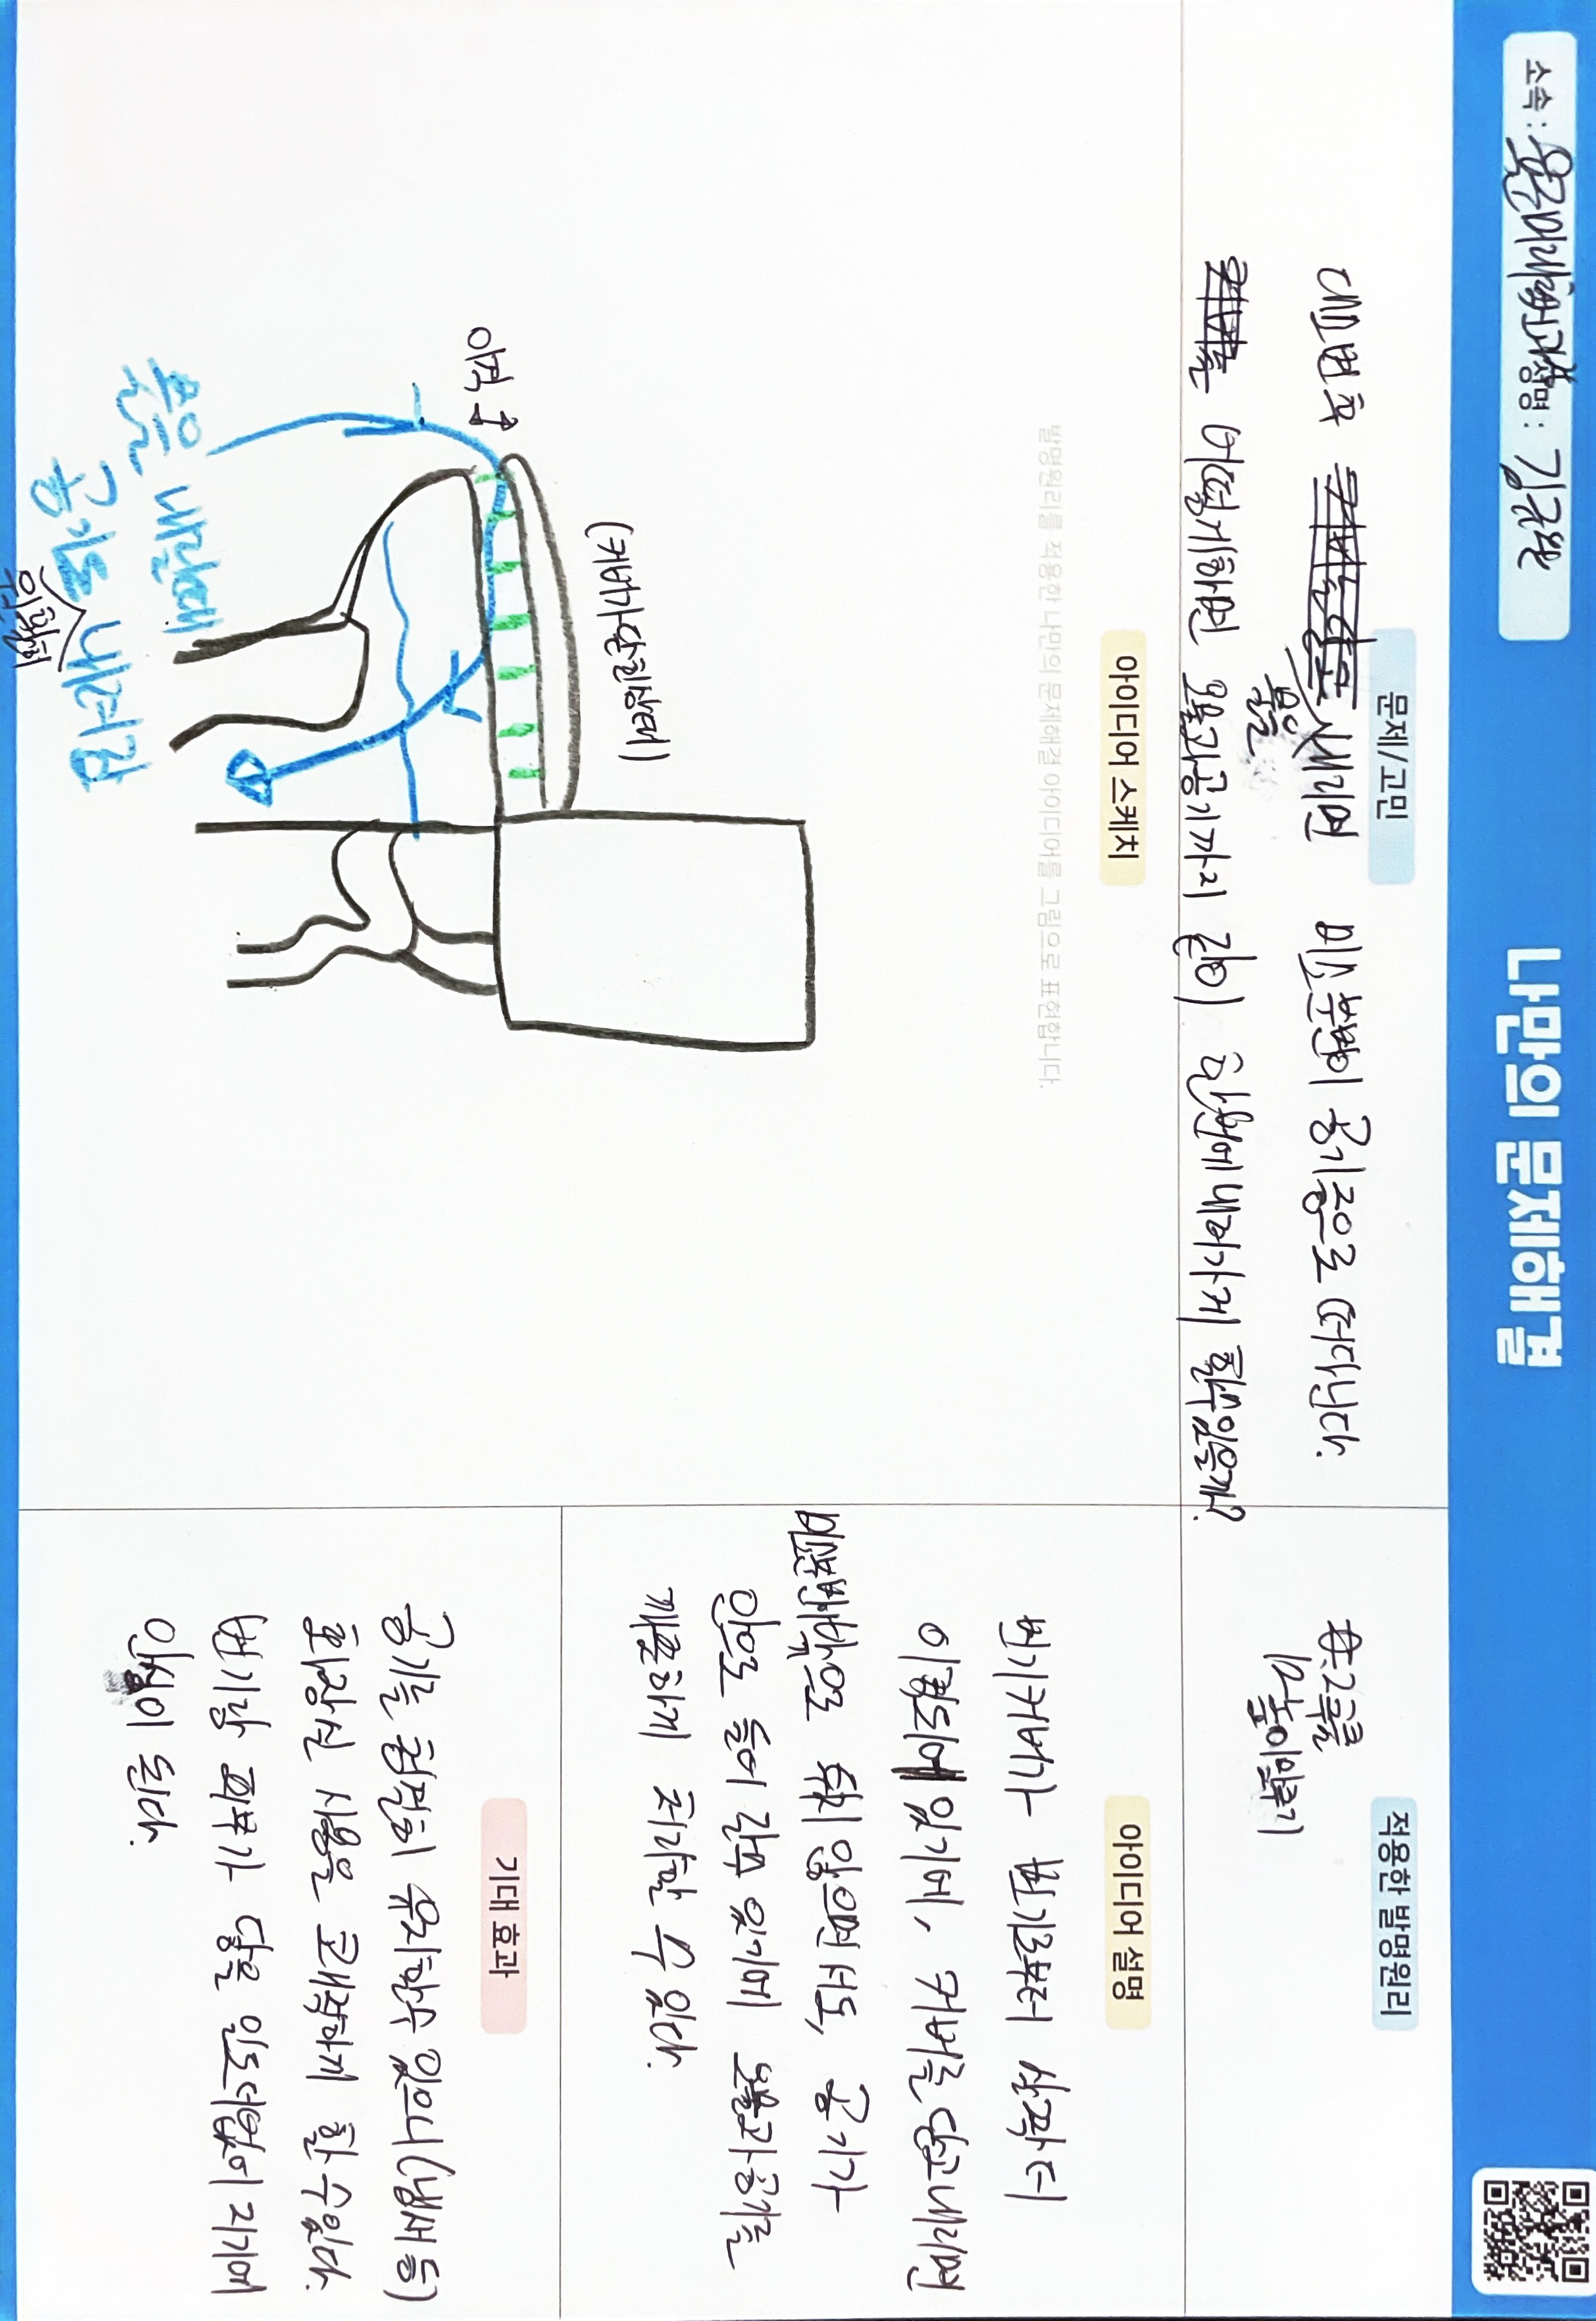 나만의 문제해결
소속 :
성명 : 김규원
문제/고민
대소변후 물을 내리면 미소분변이 공기중으로 떠다닌다.
어떻게하면 오물과공기까지 같이 한번에 내려가게 할수있을까?
적용한 발명원리
#12
높이맞추기
아이디어 스케치
발명원리를 적용한 나만의 문제해결 아이디어를 그림으로 표현합니다.
(커버가 닫힌상태)
이격
흡은 내릴때
공기도 내려감
원활히
아이디어 설명
변기커버가 변기로부터 살짝 더
이격되어 있기에, 커버를 닫고 내리면
미소분변이 밖으로 튀지 않으면서도, 공기가
안으로 들어 갈수 있기에 오물과 공기를
깨끗하게 처리할 수 있다.
기대 효과
공기를 청결히 유지할수 있으니(냄새 등)
화장실 사용은 쾌적하게 할 수있다.
변기랑 피부가 닿을 일도 더없이 적기에
안심이 된다.